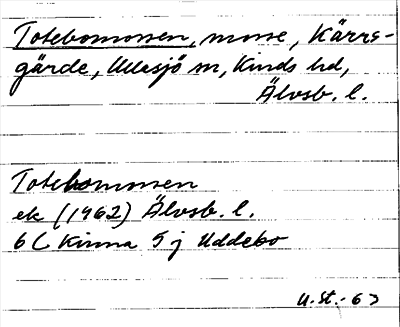 Totebomossen, mosse, Kärrs-
gärde, Ullasjö sn, Kinds hd,
Älvsb. l.
Totebomossen
ek (1962) Älvsb. l.
6 C Kinna 5 j Uddebo
U.St.-63